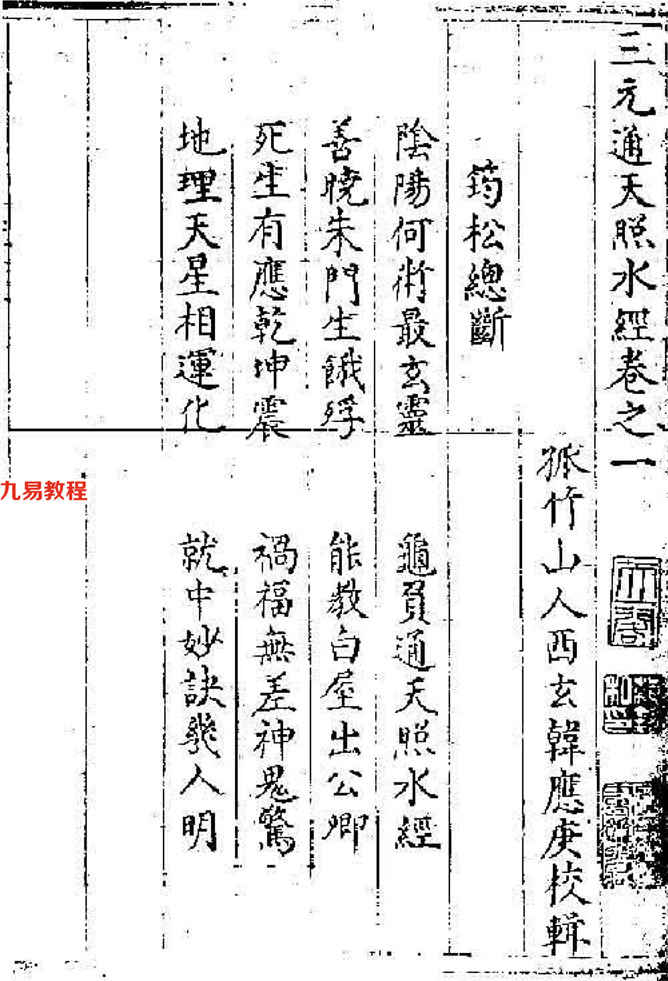 三元通天照水經卷之一
孤竹山人西玄韓應庚校輯
筠松總斷
陰陽何術最玄靈 龜負通天照水經
善曉朱門生餓殍 能教白屋出公卿
死生有應乾坤震 禍福無差神鬼驚
地理天星相運化 就中妙訣幾人明
九易教程